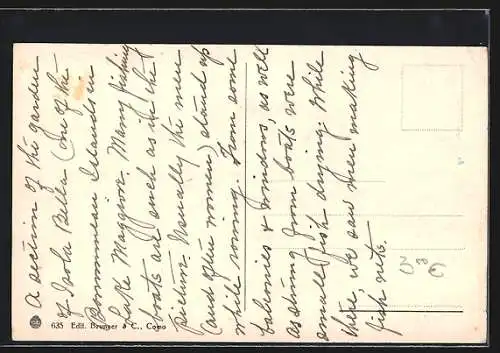 A section of the garden
of Isola Bella (one of the
Borromean Islands in
Lake Maggiore. Many fishing
boats are such as in this
picture. Usually the men
(and often women) stand up
while rowing. From some
balconies & windows, as well
as strung from boats were
small fish drying. While
there, we saw men making
fish nets.
635 Edit. Brunner & C., Como